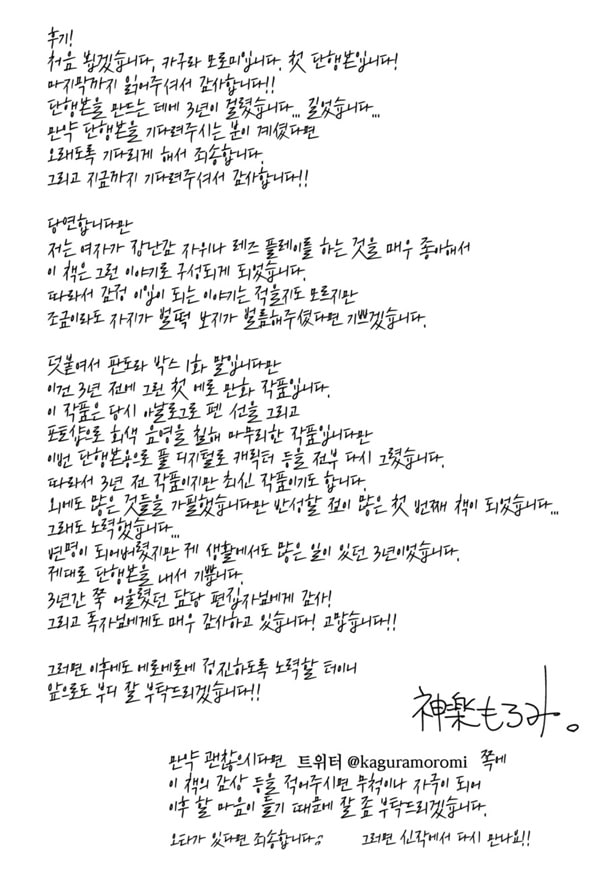 후기!
처음 뵙겠습니다, 카구라 모로미입니다. 첫 단행본입니다!
마지막까지 읽어주셔서 감사합니다!!
단행본을 만드는 데에 3년이 걸렸습니다... 길었습니다...
만약 단행본을 기다려주시는 분이 계셨다면
오래도록 기다리게 해서 죄송합니다.
그리고 지금까지 기다려주셔서 감사합니다!!
당연합니다만
저는 여자가 장난감 자위나 레즈 플레이를 하는 것을 매우 좋아해서
이 책은 그런 이야기로 구성되게 되었습니다.
따라서 감정 이입이 되는 이야기는 적을지도 모르지만
조금이라도 자지가 벌떡 보지가 벌름해주셨다면 기쁘겠습니다.
덧붙여서 판도라 박스 1화 말입니다만
이건 3년 전에 그린 첫 에로 만화 작품입니다.
이 작품은 당시 아날로그로 펜 선을 그리고
포토샵으로 회색 음영을 칠해 마무리한 작품입니다만
이번 단행본용으로 풀 디지털로 캐릭터 등을 전부 다시 그렸습니다.
따라서 3년 전 작품이지만 최신 작품이기도 합니다.
외에도 많은 것들을 가필했습니다만 반성할 점이 많은 첫 번째 책이 되었습니다...
그래도 노력했습니다...
변명이 되어버렸지만 제 생활에서도 많은 일이 있던 3년이었습니다.
제대로 단행본을 내서 기쁩니다.
3년간 쭉 어울렸던 담당 편집자님에게 감사!
그리고 독자님에게도 매우 감사하고 있습니다! 고맙습니다!!
그러면 이후에도 에로에로에 정진하도록 노력할 터이니
앞으로도 부디 잘 부탁드리겠습니다!!
神楽もろみ。
만약 괜찮으시다면 트위터 @kaguramoromi 쪽에
이 책의 감상 등을 적어주시면 무척이나 자극이 되어
이후 할 마음이 들기 때문에 잘 좀 부탁드리겠습니다.
오타가 있다면 죄송합니다 그러면 신작에서 다시 만나요!!